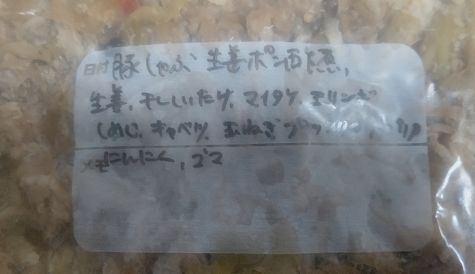 日付 豚しゃぶ 生姜ポン酢
生姜、干ししいたけ、マイタケ、エリンギ
しめじ、キャベツ、玉ねぎ
メモ にんにく、ゴマ